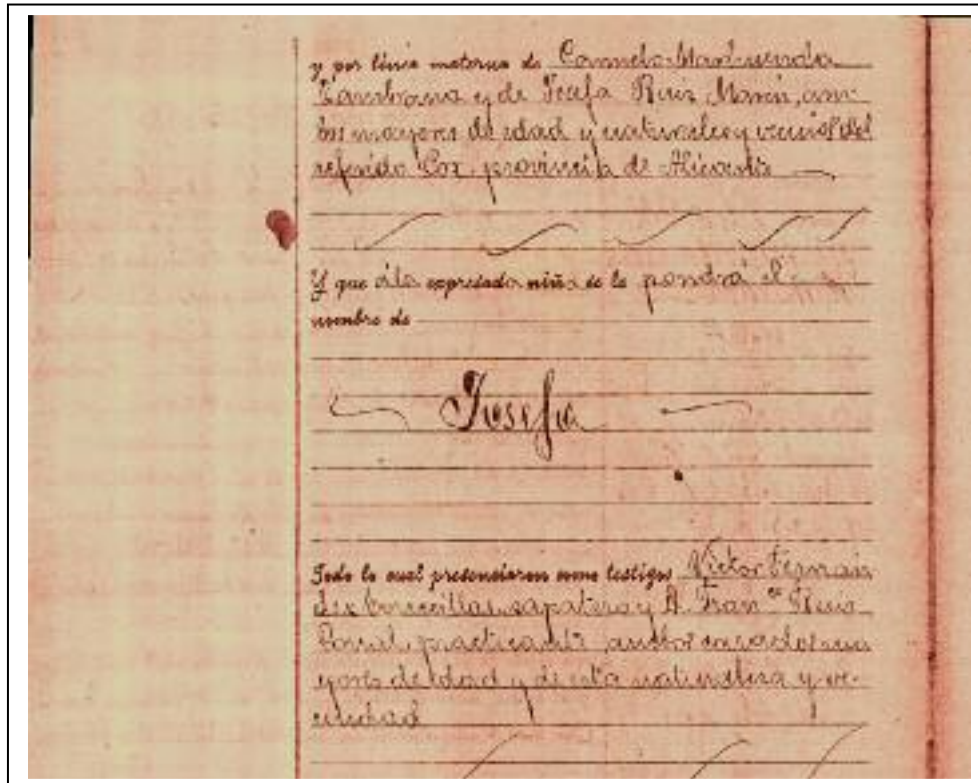 y por línea materna de Carmelo Marhuenda
Zambrana y de Josefa Ruiz Marin, am-
bos mayores de edad y naturales y vecinos del
referido Cox, provincia de Alicante
Y que á la expresada niña se la pondrá el
nombre de
Josefa
Todo lo cual presenciaron como testigos Victor Fernán
dez zapatero y D. Franco
practicante ambos casados ma
yores de edad y de esta naturaleza y ve-
cindad